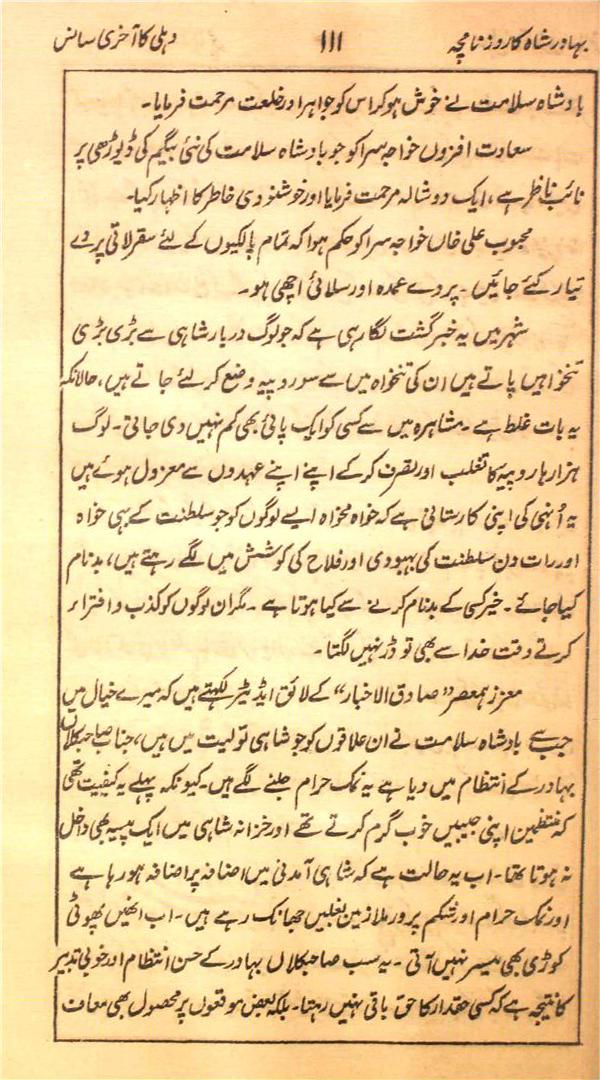 بہادر شاہ کا روزنامچہ ۱۱۱ دہلی کا آخری سانس
بادشاہ سلامت نے خوش ہو کر اس کو جواہر اور خلعت مرحمت فرمایا۔
سعادت افزوں خواجہ سرا کو جو بادشاہ سلامت کی نئی بیگم کی ڈیوڑھی پر
نائب ناظر ہے، ایک دوشالہ مرحمت فرمایا اور خوشنودی خاطر کا اظہار کیا۔
محبوب علی خاں خواجہ سرا کو حکم ہوا کہ تمام پالکیوں کے لئے سقرلاتی پردے
تیار کئے جائیں۔ پردے عمدہ اور سلائی اچھی ہو۔
شہر میں یہ خبر گشت لگا رہی ہے کہ جو لوگ دربار شاہی سے بڑی بڑی
تنخواہیں پاتے ہیں ان کی تنخواہ میں سے سو روپیہ وضع کر لئے جاتے ہیں، حالانکہ
یہ بات غلط ہے۔ مشاہرہ میں سے کسی کو ایک پائی بھی کم نہیں دی جاتی۔ لوگ
ہزارہا روپیہ کا تغلب اور تصرف کر کے اپنے اپنے عہدوں سے معزول ہوئے ہیں
یہ اُنہی کی اپنی کارستانی ہے کہ خواہ مخواہ ایسے لوگوں کو جو سلطنت کے بہی خواہ
اور رات دن سلطنت کی بہبودی اور فلاح کی کوشش میں لگے رہتے ہیں، بدنام
کیا جائے۔ خیر کسی کے بدنام کرنے سے کیا ہوتا ہے۔ مگر ان لوگوں کو کذب و افتراء
کرتے وقت خدا سے بھی تو ڈر نہیں لگتا۔
معزز ہمعصر "صادق الاخبار" کے لائق ایڈیٹر لکھتے ہیں کہ میرے خیال میں
جب سے بادشاہ سلامت نے ان علاقوں کو جو شاہی تولیت میں ہیں، جناب صاحب کلاں
بہادر کے انتظام میں دیا ہے یہ نمک حرام جلنے لگے ہیں۔ کیونکہ پہلے یہ کیفیت تھی
کہ منتظمین اپنی جیبیں خوب گرم کرتے تھے اور خزانہ شاہی میں ایک پیسہ بھی داخل
نہ ہوتا تھا۔ اب یہ حالت ہے کہ شاہی آمدنی میں اضافہ پر اضافہ ہو رہا ہے
اور نمک حرام اور شکم پرور ملازمین بغلیں جھانک رہے ہیں۔ اب انھیں پھوٹی
کوڑی بھی میسر نہیں آتی۔ یہ سب صاحب کلاں بہادر کے حسن انتظام اور خوبی تدبیر
کا نتیجہ ہے کہ کسی حقدار کا حق باقی نہیں رہتا۔ بلکہ بعض موقعوں پر محصول بھی معاف